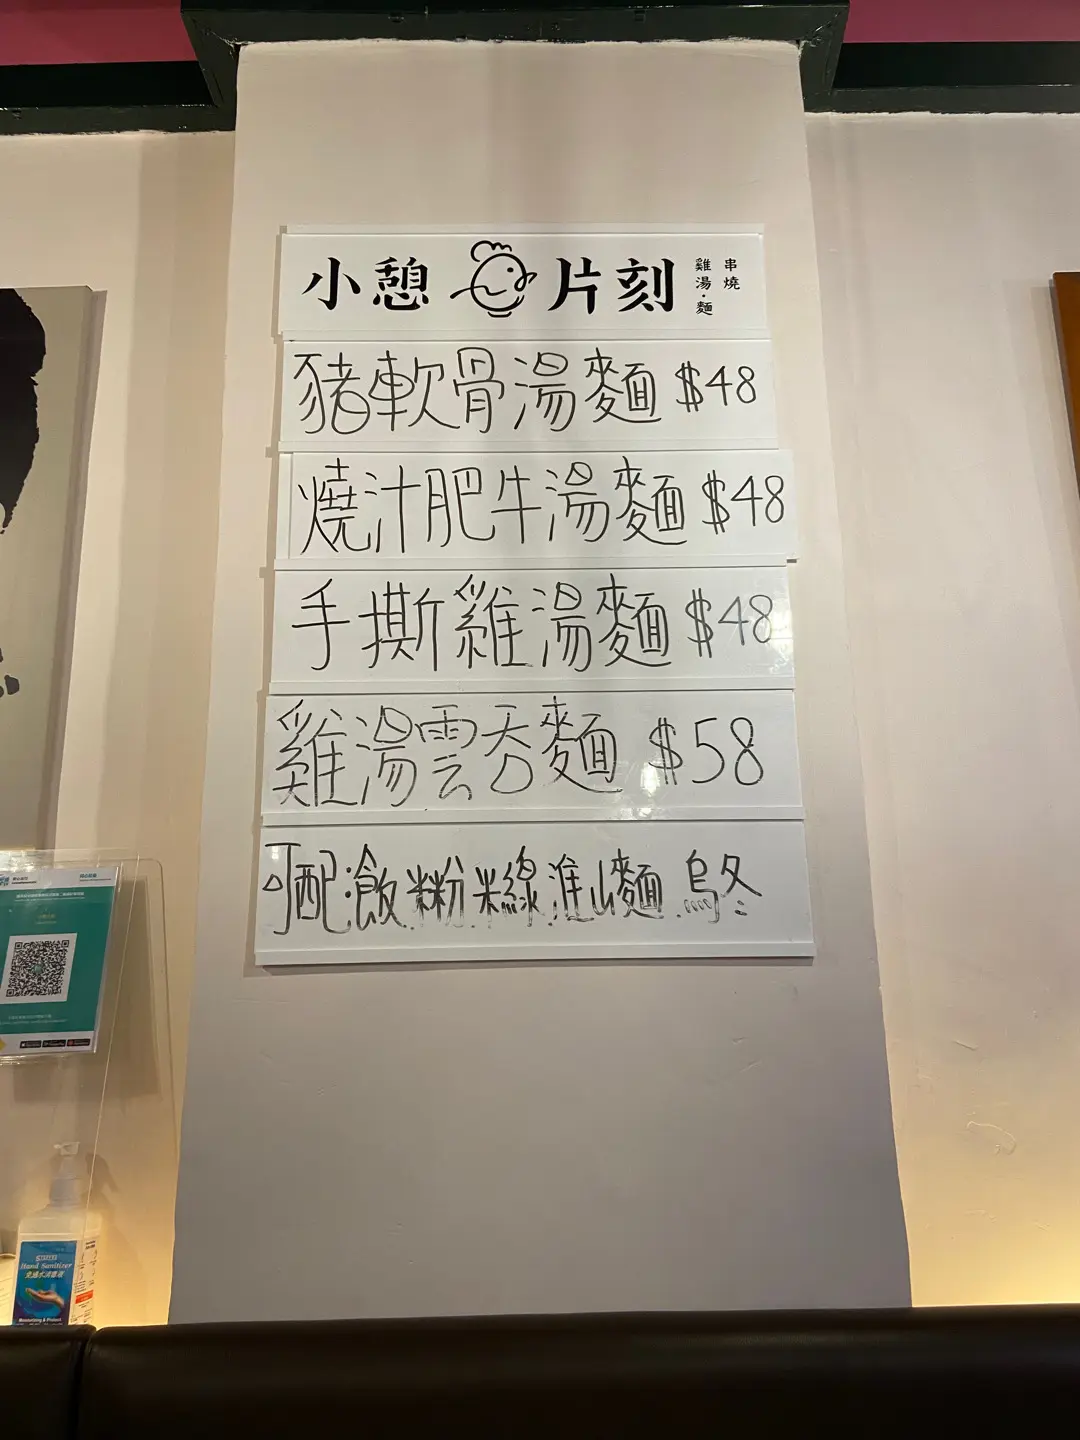 小憩片刻 雞湯·麵 串燒
豬軟骨湯麵 $48
燒汁肥牛湯麵 $48
手撕雞湯麵 $48
雞湯雲吞麵 $58
可配:飯.粉.米線.進山麵.烏冬
Hand Sanitizer